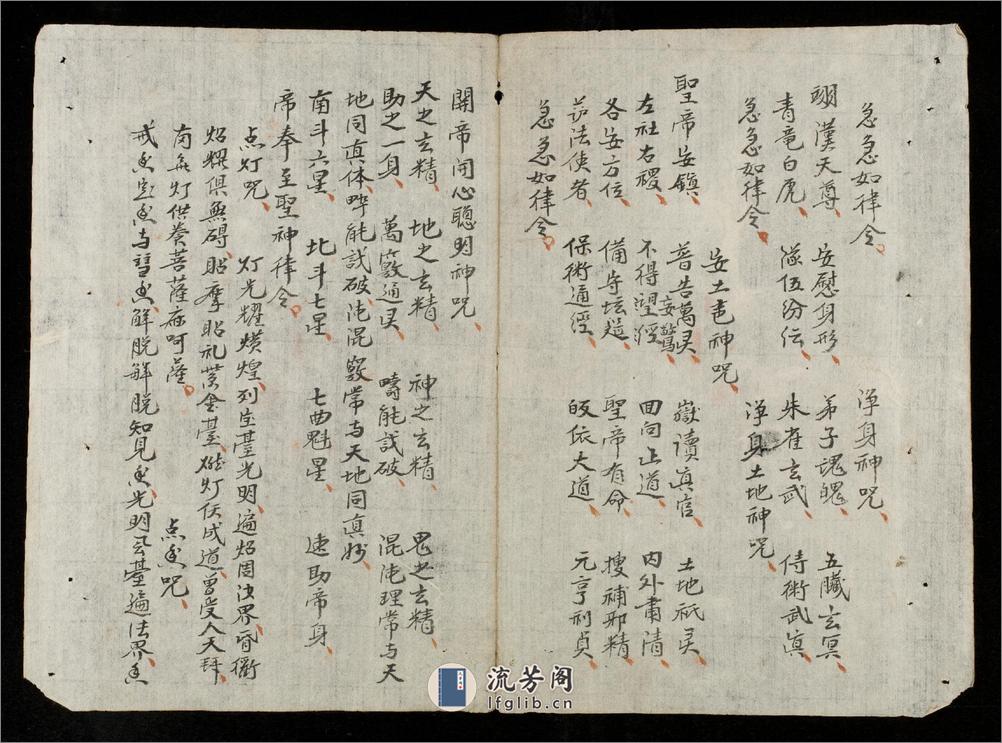 急急如律令　淨身神咒
翊漢天尊　安慰身形　弟子魂魄　五臟玄冥
青竜白虎　隊伍紛纭　朱雀玄武　侍衛武真
急急如律令　淨身土地神咒
安土地神咒
聖帝安鎮　普告萬灵　嶽讀真官　土地祇灵
左社右稷　不得望經　妄驚　回向正道　内外肅清
各安方位　備守坛　聖帝有命　搜補邪精
法使者　保術通經　皈依大道　元亨利貞
急急如律令
開帝開心聰明神咒
天之玄精　地之玄精　神之玄精　鬼之玄精
助之一身　萬竅通灵　疇能試破　混沌理常与天
地同真体　疇能試破　沌混竅常与天地同真妙
南斗六星　北斗七星　七曲魁星　速助帝身
帝奉至聖神律令
点灯咒　灯光耀煌列宝臺光明遍炤周法界昏衢
炤耀俱無碍　貼摩貽礼黄金臺　燃灯仸成道曾受人天
南無灯供養菩薩摩呵薩　点香咒
戒香定香与慧香解脱解脱知見香光明云臺遍法界香
流芳阁
lfglib.cn